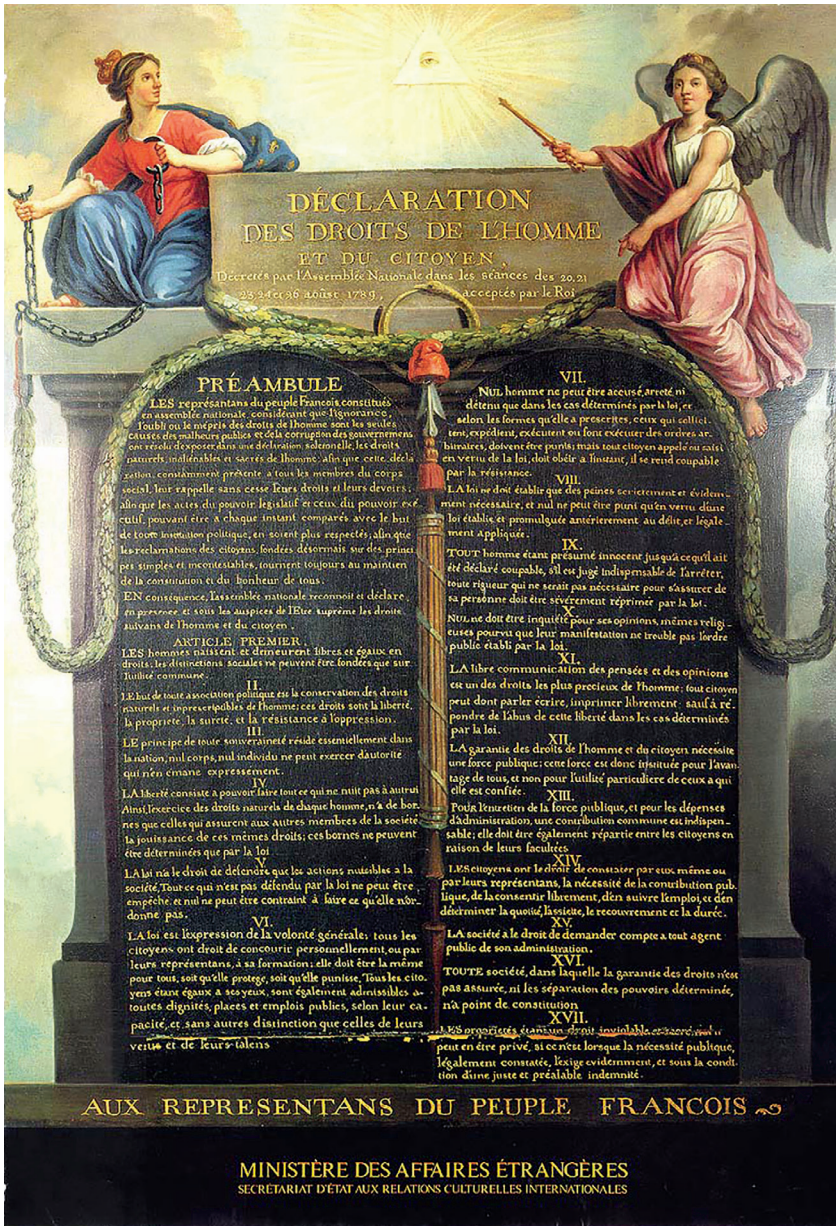 DÉCLARATION
DES DROITS DE L'HOMME
ET DU CITOYEN,
Décretés par l'Assemblée Nationale dans les séances des 20, 21
23 24 et 26 août 1789, acceptés par le Roi
PRÉAMBULE
LES représentans du peuple Francois constitués
en assemblée nationale, considérant que l'ignorance,
l'oubli ou le mépris des droits de l'homme sont les seules
causes des malheurs publics et de la corruption des gouvernemens
ont résolu d'exposer dans une déclaration solemnelle, les droits
naturels, inaliénables et sacrés de l'homme: afin que cette, décla
ration, constamment présente a tous les membres du corps
social, leur rappelle sans cesse leurs droits et leurs devoirs;
afin que les actes du pouvoir législatif et ceux du pouvoir exé
cutif, pouvant être a chaque instant comparés avec le but
de toute institution politique, en soient plus respectés; afin que
les reclamations des citoyens, fondées désormais sur des princi
pes simples et incontestables, tournent toujours au maintien
de la constitution et du bonheur de tous.
EN conséquence, l'assemblée nationale reconnoit et déclare,
en presence et sous les auspices de l'Etre suprême les droits
suivans de l'homme et du citoyen.
ARTICLE PREMIER.
LES hommes naissent et demeurent libres et égaux en
droits; les distinctions sociales ne peuvent être fondées que sur
l'utilité commune.
II.
LE but de toute association politique est la conservation des droits
naturels et inprescriptibles de l'homme; ces droits sont la liberté,
la propriete, la sureté, et la résistance à l'oppression.
III.
LE principe de toute souveraineté réside essentiellement dans
la nation, nul corps, nul individu ne peut exercer d'autorité
qui n'en émane expressement.
IV.
LA liberté consiste a pouvoir faire tout ce qui ne nuit pas à autrui
Ainsi, l'exercice des droits naturels de chaque homme, n'a de bor-
nes que celles qui assurent aux autres membres de la société
la jouissance de ces mêmes droits; ces bornes ne peuvent
être déterminées que par la loi
V.
LA loi n'a le droit de défendre que les actions nuisibles a la
société, Tout ce qui n'est pas défendu par la loi ne peut être
empêché, et nul ne peut être contraint à faire ce qu'elle n'or-
donne pas.
VI.
LA loi est l'expression de la volonté générale; tous les
citoyens ont droit de concourir personnellement, ou par
leurs représentans, à sa formation; elle doit être la même
pour tous, soit qu'elle protege, soit qu'elle punisse, Tous les cito-
yens étant égaux à ses yeux, sont également admissibles a
toutes dignités, places et emplois publics, selon leur ca-
pacité, et sans autres distinction que celles de leurs
vertus et de leurs talens
VII.
NUL homme ne peut être accusé, arreté, ni
détenu que dans les cas déterminés par la loi, et
selon les formes qu'elle a prescrites, ceux qui sollici-
tent, expédient, exécutent ou font exécuter des ordres ar-
bitraires, doivent être punis; mais tout citoyen appelé ou saisi
en vertu de la loi, doit obéir a l'instant, il se rend coupable
par la résistance.
VIII.
LA loi ne doit établir que des peines strictement et évidem-
ment nécessaire, et nul ne peut être puni qu'en vertu d'une
loi établie et promulguée antérierement au délit, et légale-
ment appliquée.
IX.
TOUT homme étant présumé innocent jusqu'a ce qu'il ait
été déclaré coupable, s'il est jugé indispensable de l'arrêter,
toute rigueur qui ne serait pas nécessaire pour s'assurer de
sa personne doit être sévèrement réprimée par la loi.
X.
NUL ne doit être inquiété pour ses opinions, mêmes religi-
euses pourvu que leur manifestation ne trouble pas l'ordre
public établi par la loi.
XI.
LA libre communication des pensées et des opinions
est un des droits les plus precieux de l'homme; tout citoyen
peut dont parler écrire, imprimer librement: sauf à ré-
pondre de l'abus de cette liberté dans les cas déterminés
par la loi.
XII.
LA garantie des droits de l'homme et du citoyen nécessite
une force publique; cette force est donc instituée pour l'avan-
tage de tous, et non pour l'utilité particuliere de ceux a qui
elle est confiée.
XIII.
POUR l'entretien de la force publique, et pour les dépenses
d'administration, une contribution commune est indispen-
sable; elle doit être également répartie entre les citoyens en
raison de leurs facultées
XIV.
LES citoyens ont le droit de constater par eux même ou
par leurs représentans, la nécessité de la contribution pub-
lique, de la consentir librement, d'en suivre l'emploi, et d'en
déterminer la quotité, l'assiette, le recouvrement et la durée.
XV.
LA société a le droit de demander compte a tout agent
public de son administration.
XVI.
TOUTE société, dans laquelle la garantie des droits n'est
pas assurée, ni les séparation des pouvoirs déterminée,
n'a point de constitution
XVII.
LES propriétés étant un droit inviolable et sacré, nul
peut en être privé, si ce n'est lorsque la nécessité publique,
légalement constatée, l'exige evidemment, et sous la condi-
tion d'une juste et préalable indemnité.
AUX REPRESENTANS DU PEUPLE FRANCOIS
MINISTÈRE DES AFFAIRES ÉTRANGÈRES
SECRÉTARIAT D'ÉTAT AUX RELATIONS CULTURELLES INTERNATIONALES